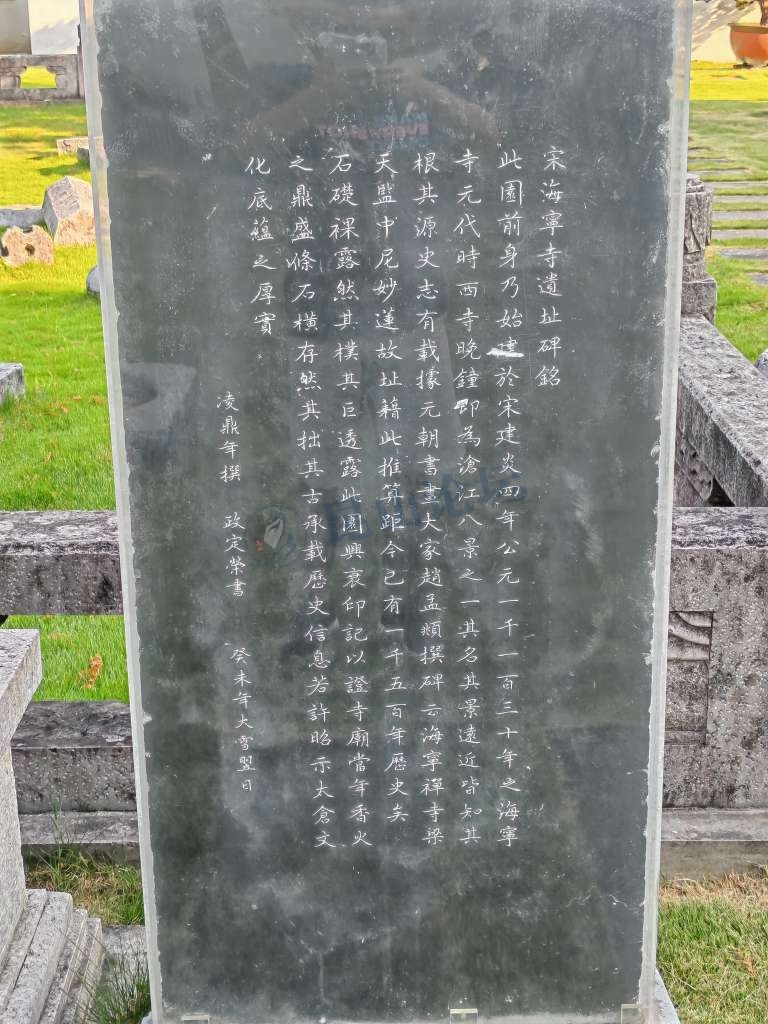 宋海寧寺遺址碑銘
此園前身乃始建於宋建炎四年公元一千一百三十年之海寧
寺元代時西寺晚鐘即為滄江八景之一其名其景遠近皆知其
根其源史志有載據元朝書畫大家趙孟頫撰碑云海寧禪寺梁
天監中尼妙蓮故址藉此推算距今已有一千五百年歷史矣
石礎裸露然其樸其巨透露此園興衰印記以證寺廟當年香火
之鼎盛條石橫存然其拙其古承載歷史信息若許昭示太倉文
化底蘊之厚實
凌鼎年撰 政定榮書 癸未年大雪翌日
昆山论坛